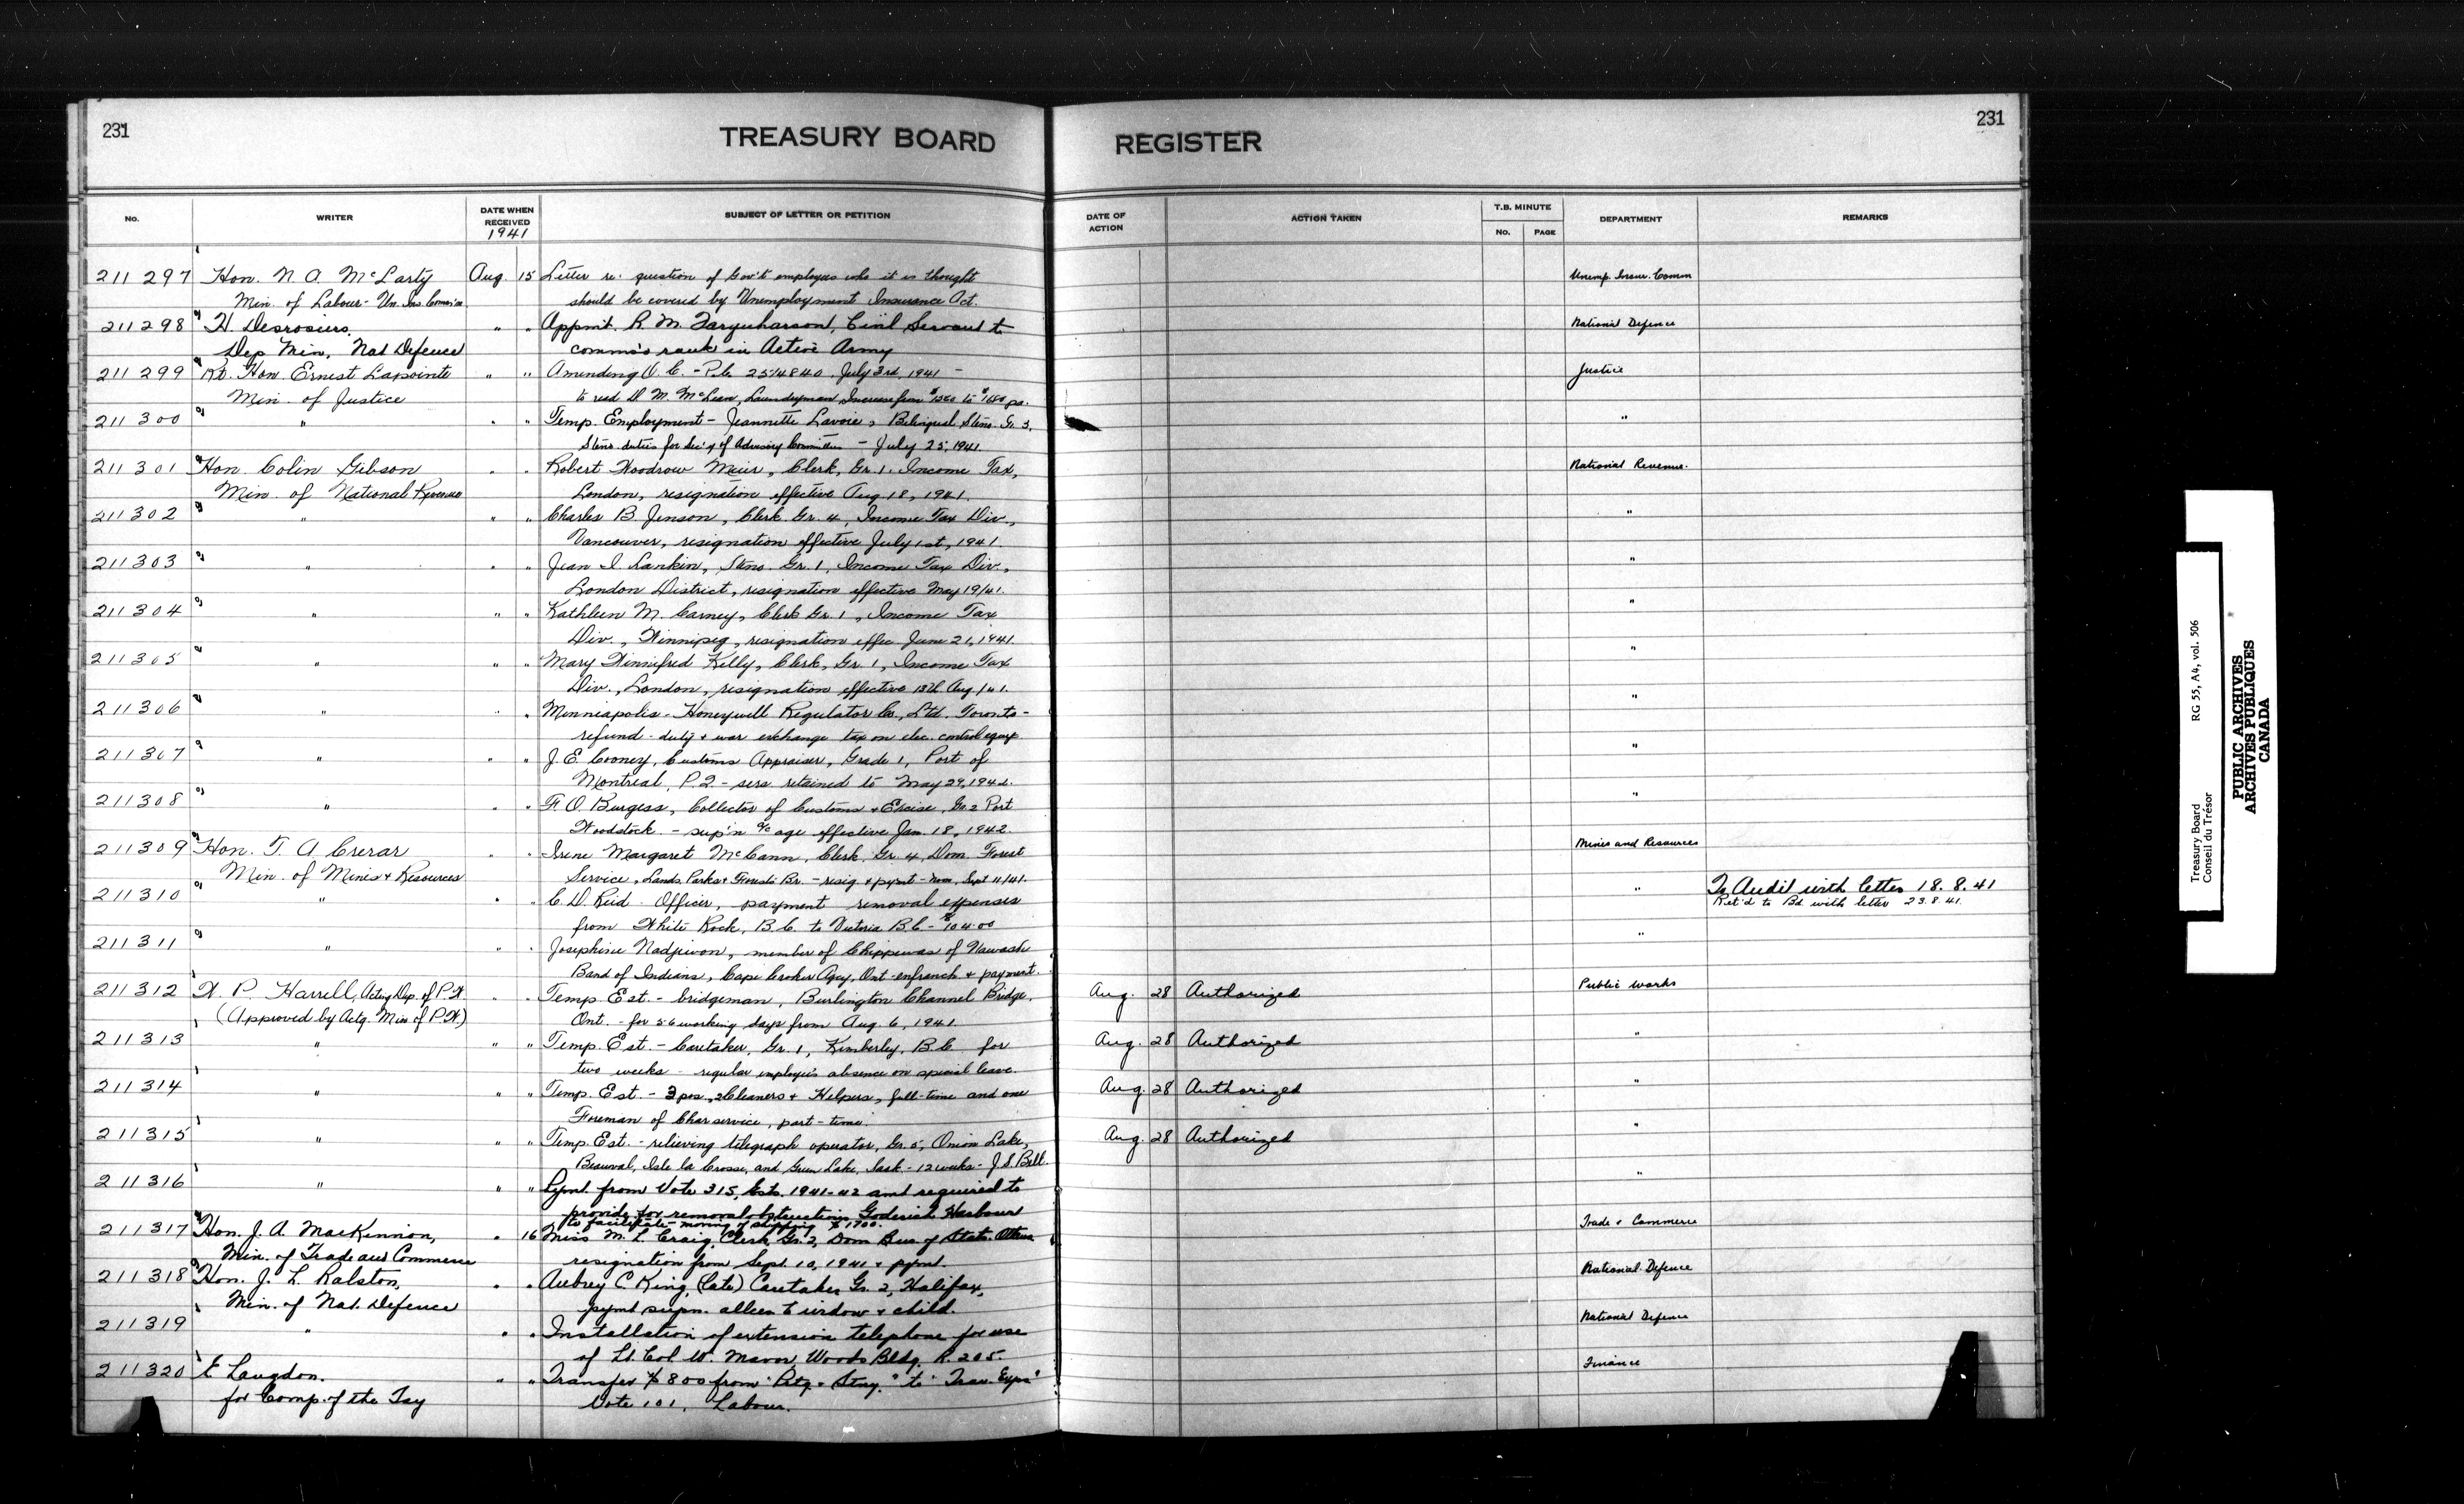 231
TREASURY BOARD
REGISTER
231
No.
WRITER
DATE WHEN RECEIVED
1941
SUBJECT OF LETTER OR PETITION
DATE OF ACTION
ACTION TAKEN
T.B. MINUTE
No.
PAGE
DEPARTMENT
REMARKS
211297 Hon. N. A. McLarty Aug. 15 Letter re: question of Gov't employees who it is thought Unemp. Insur. Comm
Min. of Labour - Un. Ins. Comm'on should be covered by Unemployment Insurance Act.
211298 H. Desrosiers, " " Appmt. R. M. Farquharson, Civil Servant to National Defence
Dep Min. Nat Defence comm'd rank in Active Army
211299 Rt. Hon. Ernest Lapointe " " Amending O.C. - P.C. 25/4840 July 3rd, 1941 - Justice
Min. of Justice to read D. M. McLean, Laundryman, Increase from to $1680 pa.
211300 " " " Temp. Employment - Jeannette Lavoie, Bilingual Steno. Gr. 3, "
Steno. duties for Sec'y of Advisory Committee - July 25, 1941
211301 Hon. Colin Gibson " " Robert Woodrow Meier, Clerk, Gr. 1. Income Tax, National Revenue.
Min. of National Revenue London, resignation effective Aug. 18, 1941.
211302 " " " Charles B. Jenson, Clerk Gr. 4, Income Tax Div., "
Vancouver, resignation effective July 1st, 1941.
211303 " " " Jean I. Rankin, Steno. Gr. 1, Income Tax Div., "
London District, resignation effective May 19/41.
211304 " " " Kathleen M. Carney, Clerk Gr. 1, Income Tax "
Div., Winnipeg, resignation effec. June 21, 1941.
211305 " " " Mary Winnifred Kelly, Clerk, Gr. 1, Income Tax "
Div., London, resignation effective 13th Aug/41.
211306 " " " Minneapolis-Honeywell Regulator Co., Ltd. Toronto - "
refund - duty & war exchange tax on elec. control equip
211307 " " " J. E. Cooney, Customs Appraiser, Grade 1, Port of "
Montreal, P.Q. - sers retained to May 29, 1942.
211308 " " " F. O. Burgess, Collector of Customs & Excise, Gr. 2 Port "
Woodstock. - sup'n a/c age effective Jan. 18, 1942.
211309 Hon. T. A. Crerar " " Irene Margaret McCann, Clerk, Gr. 4, Dom. Forest Mines and Resources
Min. of Mines & Resources Service, Lands, Parks & Forests Br. - resig & pymt - Sept 11/41.
211310 " " " C. D. Reid - Officer, payment removal expenses " To Audit with letter 18.8.41
Ret'd to Bd. with letter 23.8.41.
from White Rock, B.C. to Victoria B.C. - $104.00
211311 " " " Josephine Nadjiwon, member of Chippewas of Nawash "
Band of Indians, Cape Croker Agcy, Ont - enfranch & payment.
211312 W. P. Harrell, Acting Dep. of P.W. " " Temp. Est. - bridgeman, Burlington Channel Bridge, Aug. 28 Authorized Public Works
(Approved by Actg. Min of P.W.) Ont. - for 56 working days from Aug. 6, 1941.
211313 " " " Temp. Est. - Caretaker, Gr. 1, Kimberley, B.C. for Aug. 28 Authorized "
two weeks - regular employee's absence on special leave.
211314 " " " Temp. Est. - 3 pos., 2 Cleaners & Helpers, full-time and one Aug. 28 Authorized "
Foreman of Char service, part-time.
211315 " " " Temp. Est. - relieving telegraph operator, Gr. 5, Onion Lake, Aug. 28 Authorized "
Beauval, Isle la Crosse, and Green Lake, Sask - 12 weeks - J. S. Bell.
211316 " " " Pymt. from Vote 315, Ests. 1941-42 amt required to "
provide for removal obstructions Goderich Harbour
to facilitate moving of shipping $1700.
211317 Hon. J. A. MacKinnon, " 16 Miss M. L. Craig, Clerk Gr. 2, Dom Bur. of Stats. Ottawa Trade & Commerce
Min. of Trade and Commerce resignation from Sept. 10, 1941 & pymt.
211318 Hon. J. L. Ralston, " " Aubrey C. King, (late) Caretaker Gr. 2, Halifax, National Defence
Min. of Nat. Defence pymt supn. allce to widow & child.
211319 " " " Installation of extension telephone for use National Defence
of Lt. Col. W. Mavor, Woods Bldg. R. 205.
211320 E Langdon. " " Transfer $800 from "Ptg. & Stny." to "Trav. Exps" Finance
for Comp. of the Tsy Vote 101, Labour.
Treasury Board
Conseil du Trésor
RG 55, A4, vol. 506
PUBLIC ARCHIVES
ARCHIVES PUBLIQUES
CANADA